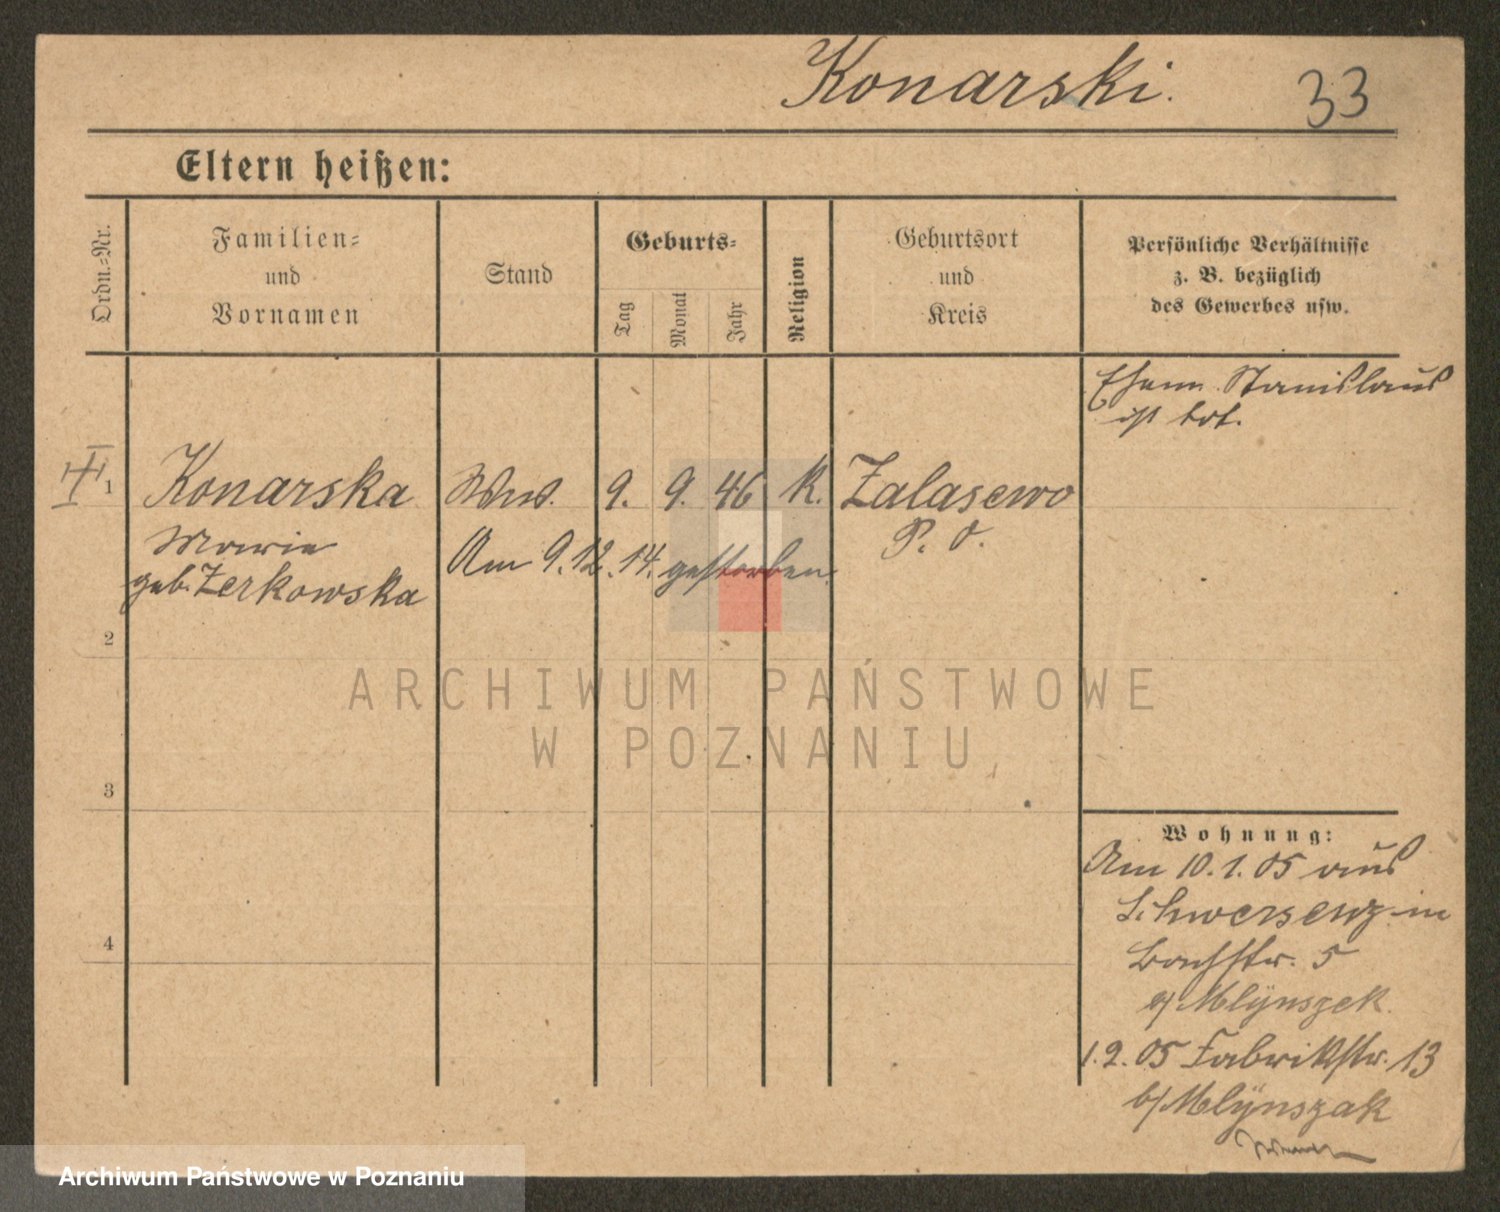 Konarski.
33
Eltern heißen:
Ordn.-Nr.
Familien-
und
Vornamen
Stand
Geburts-
Tag
Monat
Jahr
Religion
Geburtsort
und
Kreis
Persönliche Verhältnisse
z. B. bezüglich
des Gewerbes usw.
Ehem. Stanislaus
ist tot.
1
Konarska
Wwe.
9.
9.
46
K.
Zalasewo
Marie
Am 9.12.14. gestorben.
P. O.
geb. Zerkowska
2
ARCHIWUM PAŃSTWOWE
W POZNANIU
3
Wohnung:
Am 10.1.05 aus
Schwersenz in
4
5
b/ Mlÿnszek.
1.2.05 Fabrikstr. 13
b/ Mlÿnszak
Archiwum Państwowe w Poznaniu